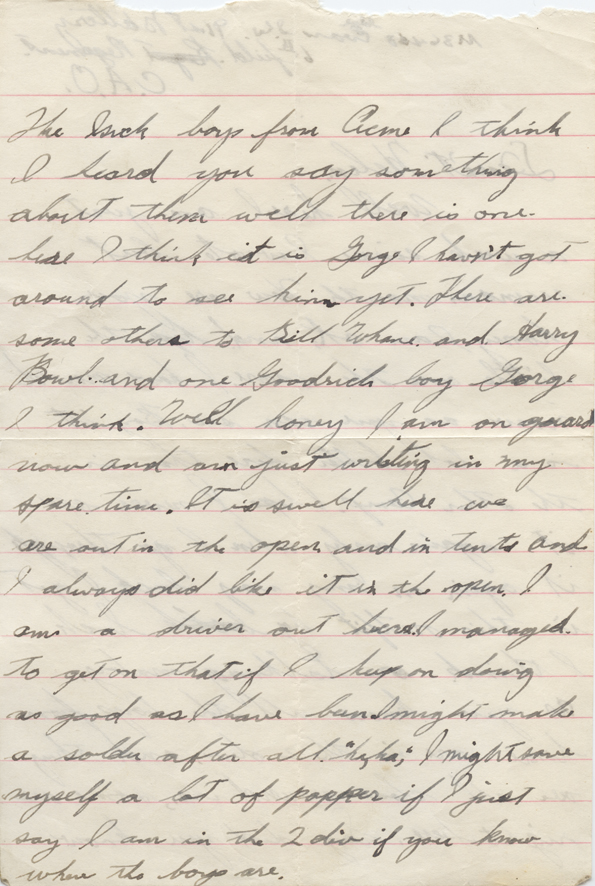 The boys from Acme I think
I heard you say something
about them well there is one
hear I think it is Gorge I havn't got
around to see him yet. There are
some others to Bill Whane and Harry
Bowl. and one Goodrich boy Gorge
I think. Well honey I am on guard
now and am just writting in my
spare time. It is swell here we
are out in the open and in tents and
I always did like it in the open. I
am a driver out here. I managed
to get on that if I keep on doing
as good as I have been I might make
a solder after all. "ha, ha," I might save
myself a lot of papper if I just
say I am in the 2 div if you know
where the boys are.